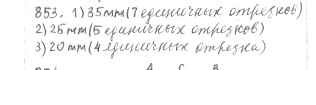 853. 1) 35мм (7 единичных отрезков)
2) 25мм (5 единичных отрезков)
3) 20мм (4 единичных отрезка)
А С В